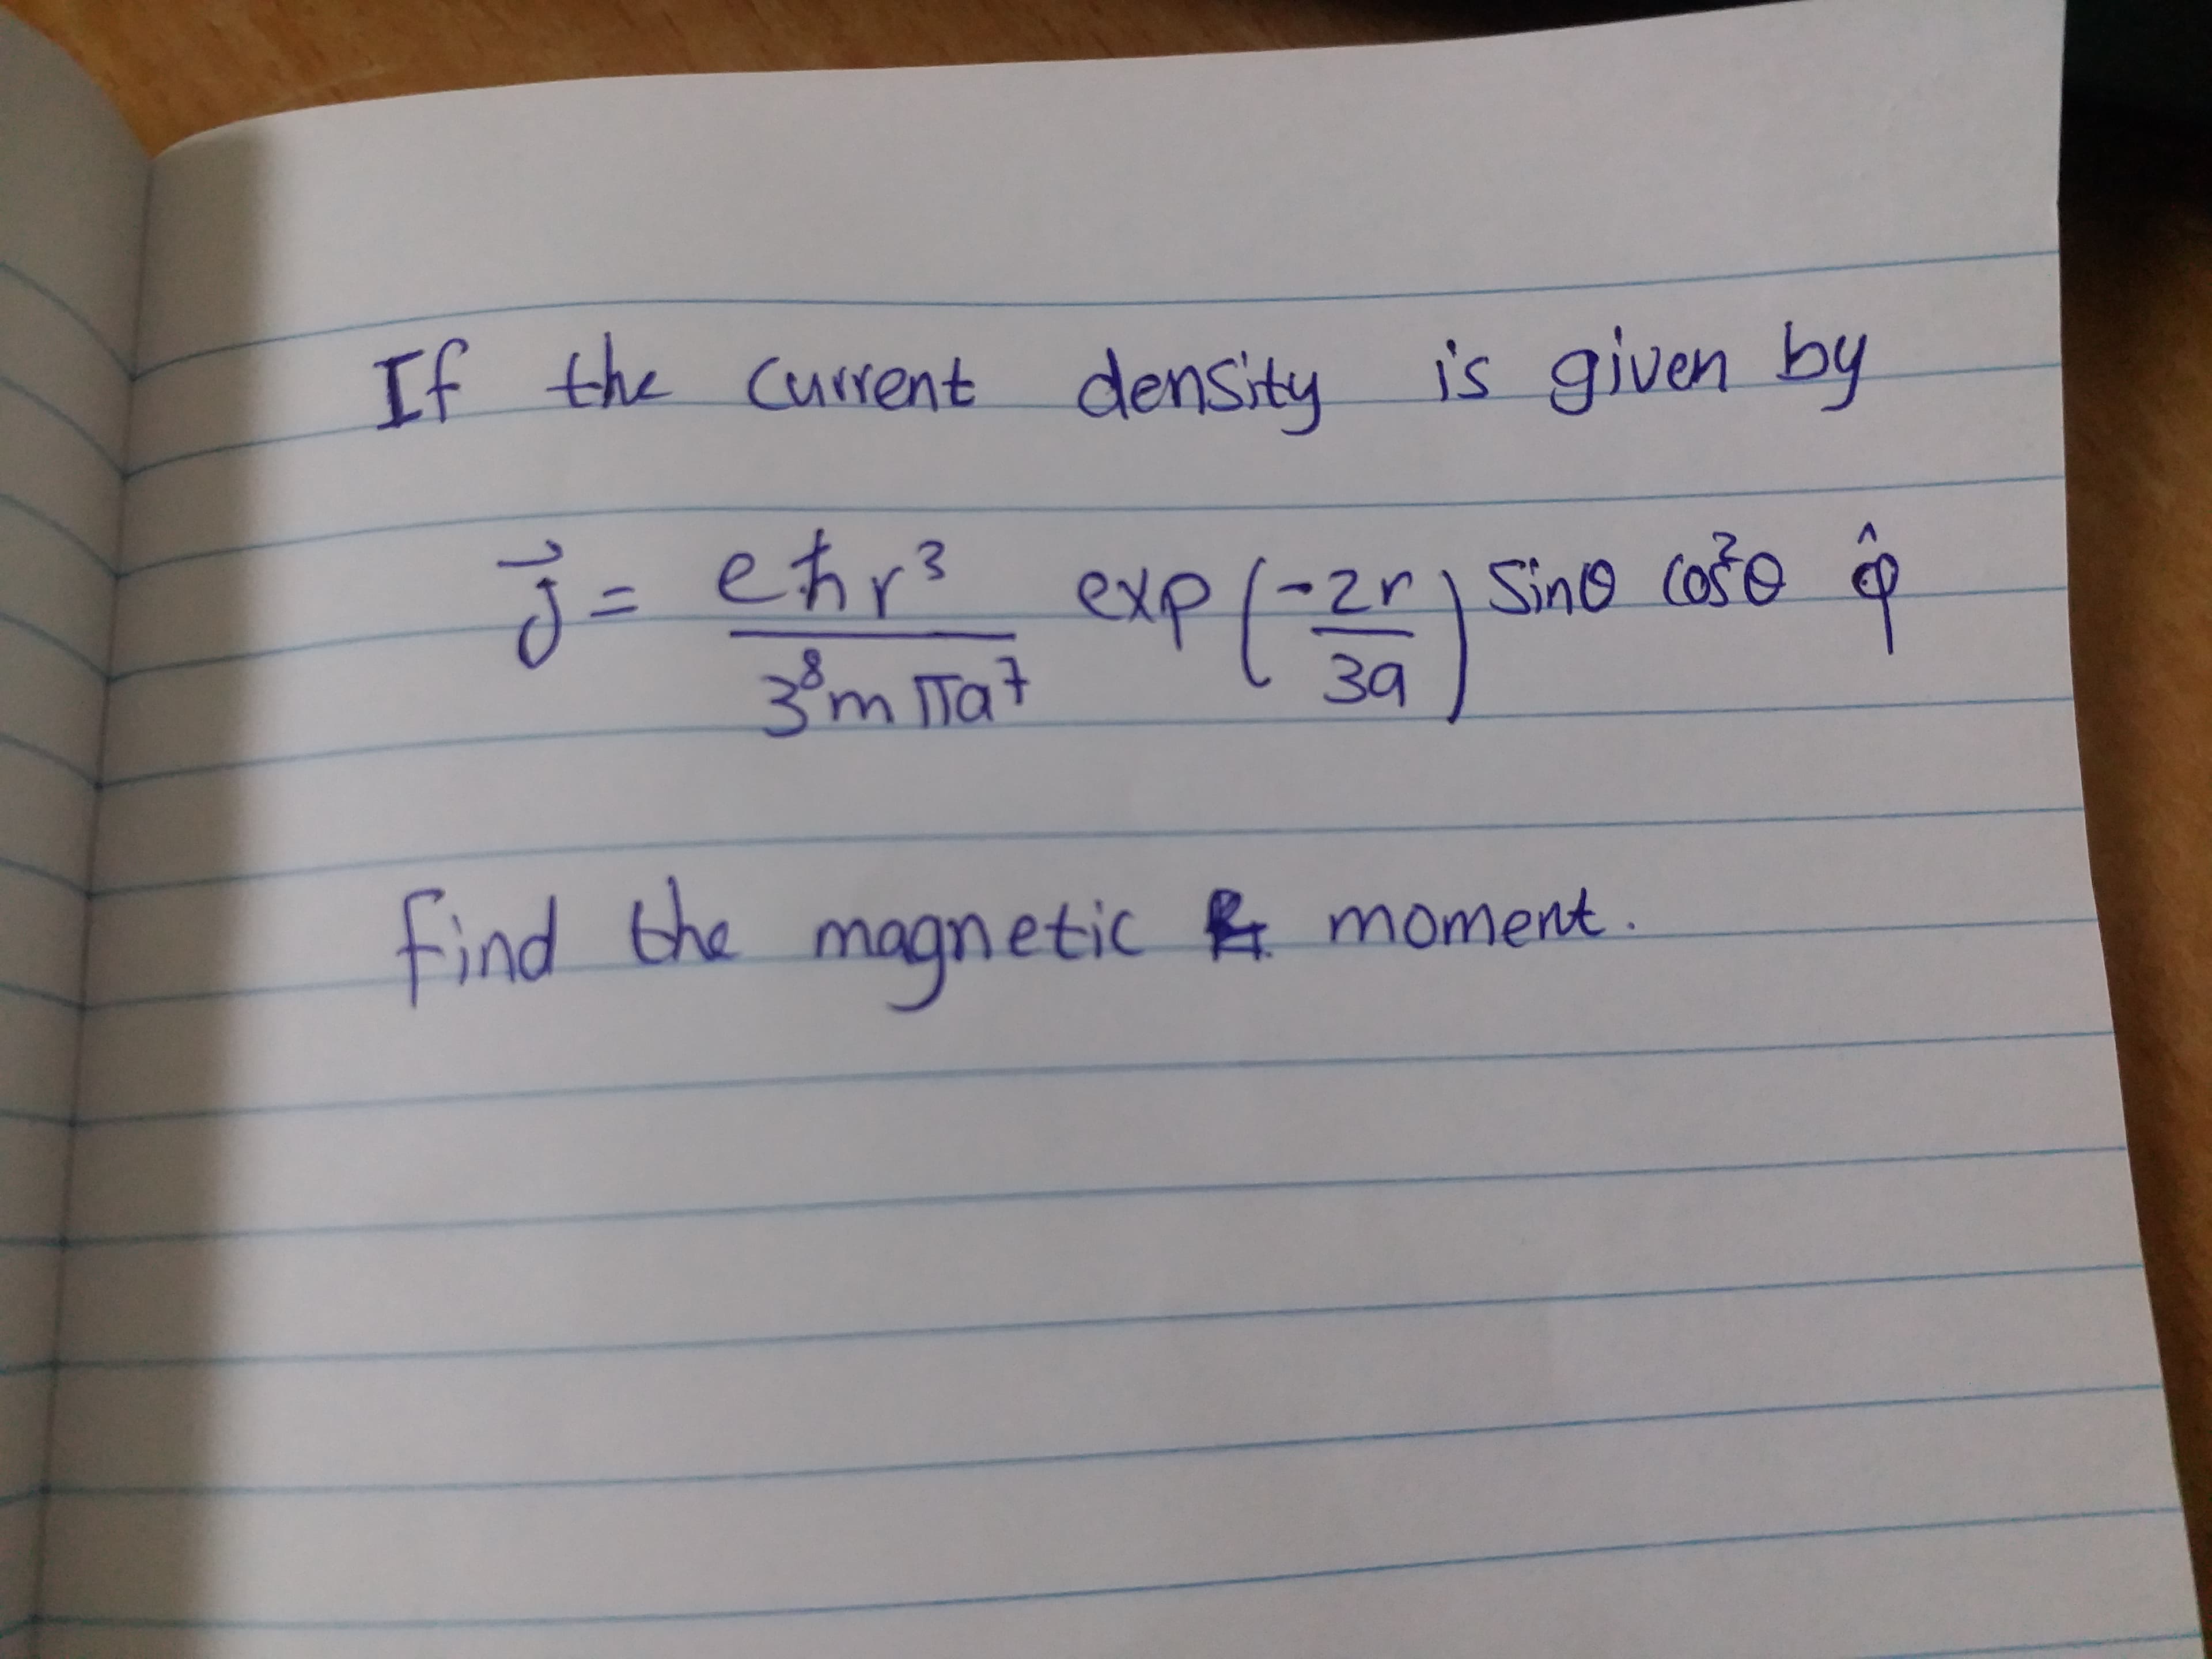 If the current density is given by
j⃗ = eħr³ / 3⁸mπa⁷ exp(-2r/3a) sinθ cos²θ φ̂
find the magnetic moment.